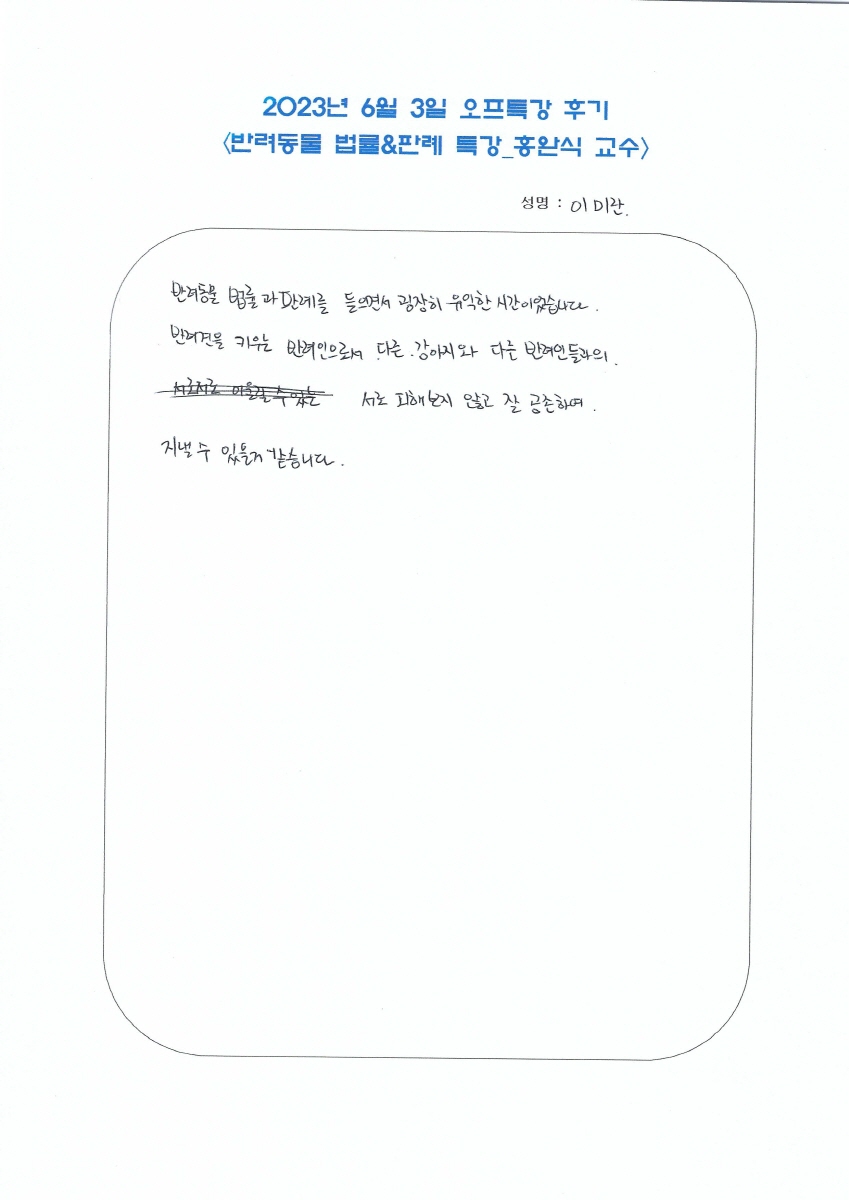 2023년 6월 3일 오프특강 후기
<반려동물 법률&판례 특강_홍완식 교수>
성명 : 이미란.
반려동물 법률과 판례를 들으면서 굉장히 유익한 시간이었습니다.
반려견을 키우는 반려인으로서 다른 강아지와 다른 반려인들과의.
서로서로 어울릴 수 있는 서로 피해보지 않고 잘 공존하며.
지낼 수 있을거 같습니다.